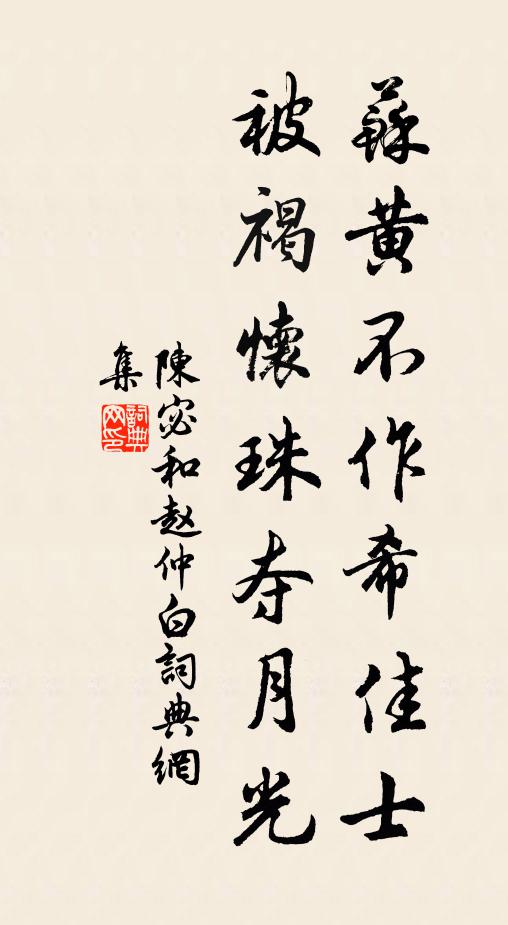 蘇黄不作希佳士
被褐懷珠夺月光
陳宓和赵仲白詞典網
集
詞典网印